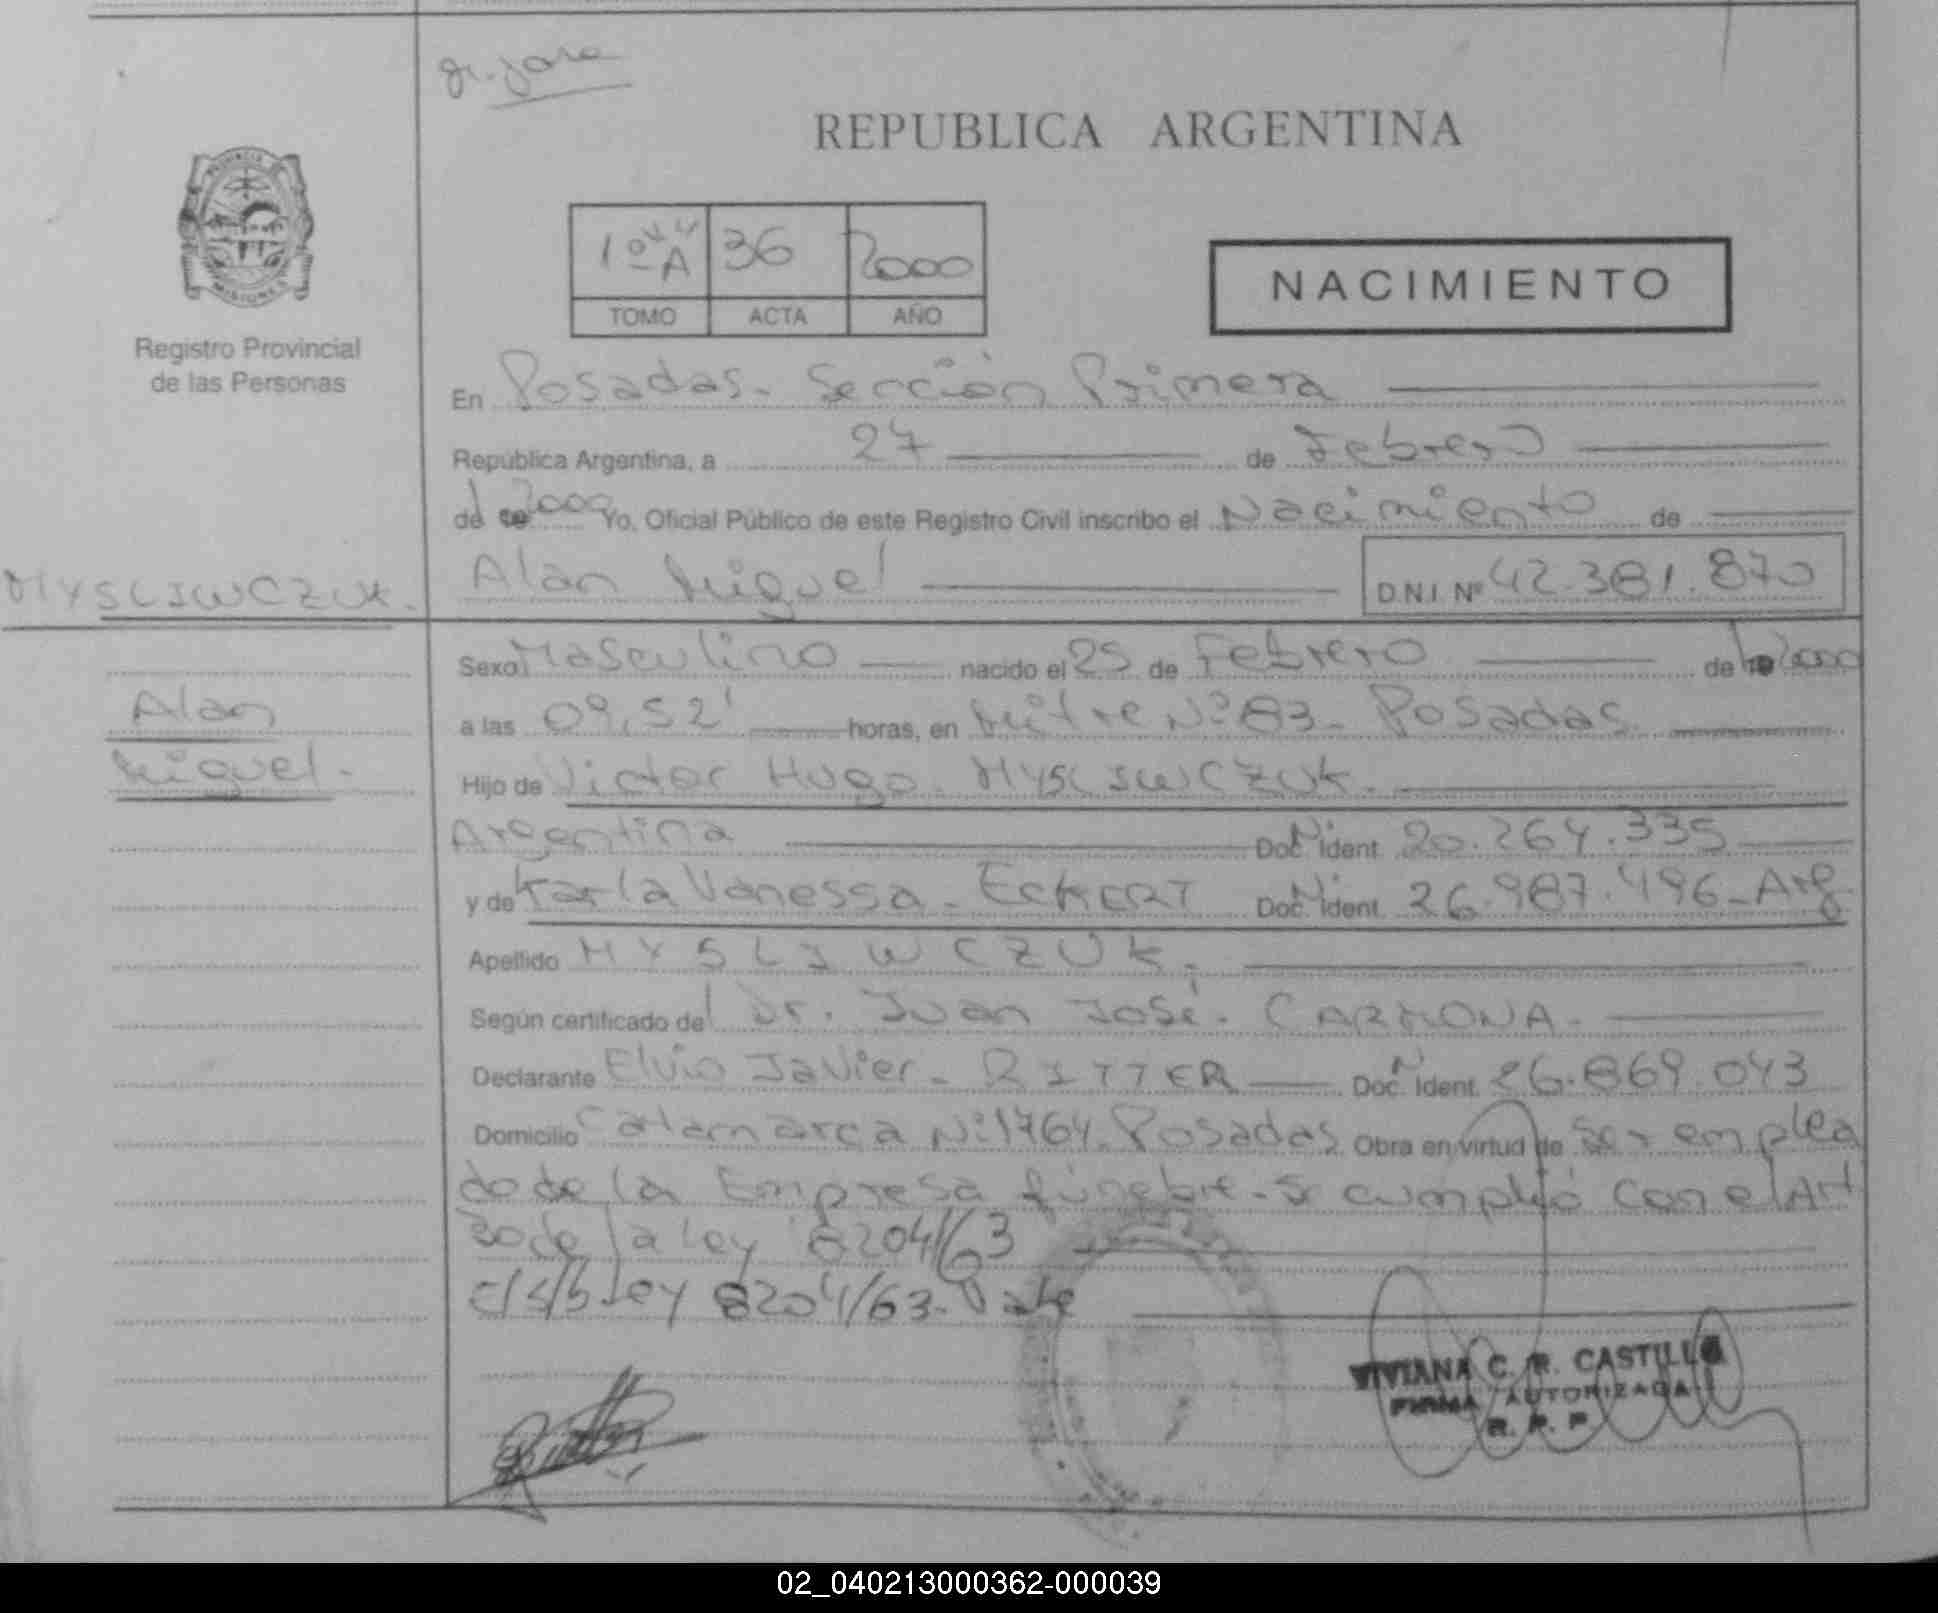 REPUBLICA ARGENTINA
1º "A" 36 2000
TOMO ACTA AÑO
NACIMIENTO
Registro Provincial
de las Personas
En Posadas - Sección Primera
República Argentina, a 27 de Febrero
del 2000 Yo, Oficial Público de este Registro Civil inscribo el Nacimiento de
MYSLIWCZUK.
Alan Miguel D.N.I. Nº 42.381.870
Sexo Masculino nacido el 25 de Febrero de 2000
Alan
a las 09,52' horas, en Mitre Nº 83 - Posadas
Miguel -
Hijo de Victor Hugo - MYSLIWCZUK.
Argentina Doc. N Ident. 20.264.335
y de Karla Vanessa - ECKERT Doc. N Ident. 26.987.496 - Arg
Apellido MYSLIWCZUK,
Según certificado del Dr. Juan José - CARMONA -
Declarante Elvio Javier - RITTER Doc. N Ident. 26.869.043
Domicilio Catamarca Nº 1764 - Posadas Obra en virtud de ser emplea
do de la Empresa fúnebre - Se cumplió con el Art
30 de la ley 8204/63
ley 8204/63 - Vale
VIVIANA C. R. CASTILLO
FIRMA AUTORIZADA
R. P. P
02_040213000362-000039